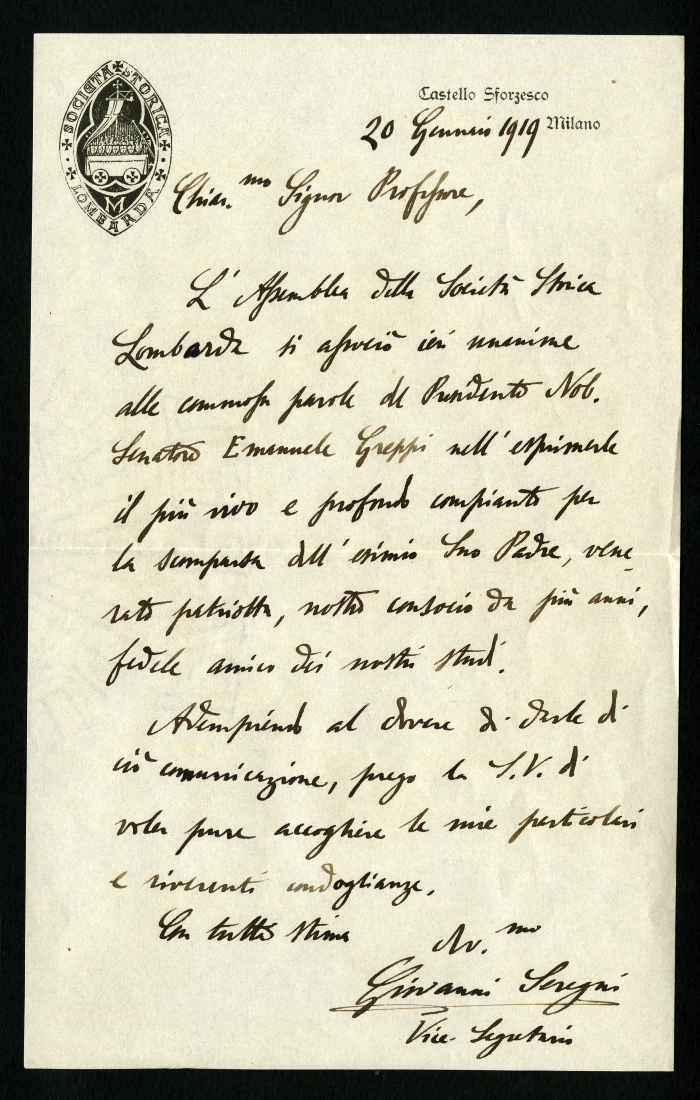 SOCIETÀ STORICA LOMBARDA
M
Castello Sforzesco
Milano
20 Gennaio 1919
Chiar.mo Signor Professore,
L'Assemblea della Società Storica
Lombarda si associò ieri unanime
alle commosse parole del Presidente Nob.
Senatore Emanuele Greppi nell'esprimerle
il più vivo e profondo compianto per
la scomparsa dell'esimio Suo Padre, vene-
rato patriotta, nostro consocio da più anni,
fedele amico dei nostri studi.
Adempiendo al dovere di darle di
ciò comunicazione, prego la S.V. di
voler pure accogliere le mie particolari
e riverenti condoglianze.
Con tutta stima
Dv.mo
Giovanni Seregni
Vice-Segretario